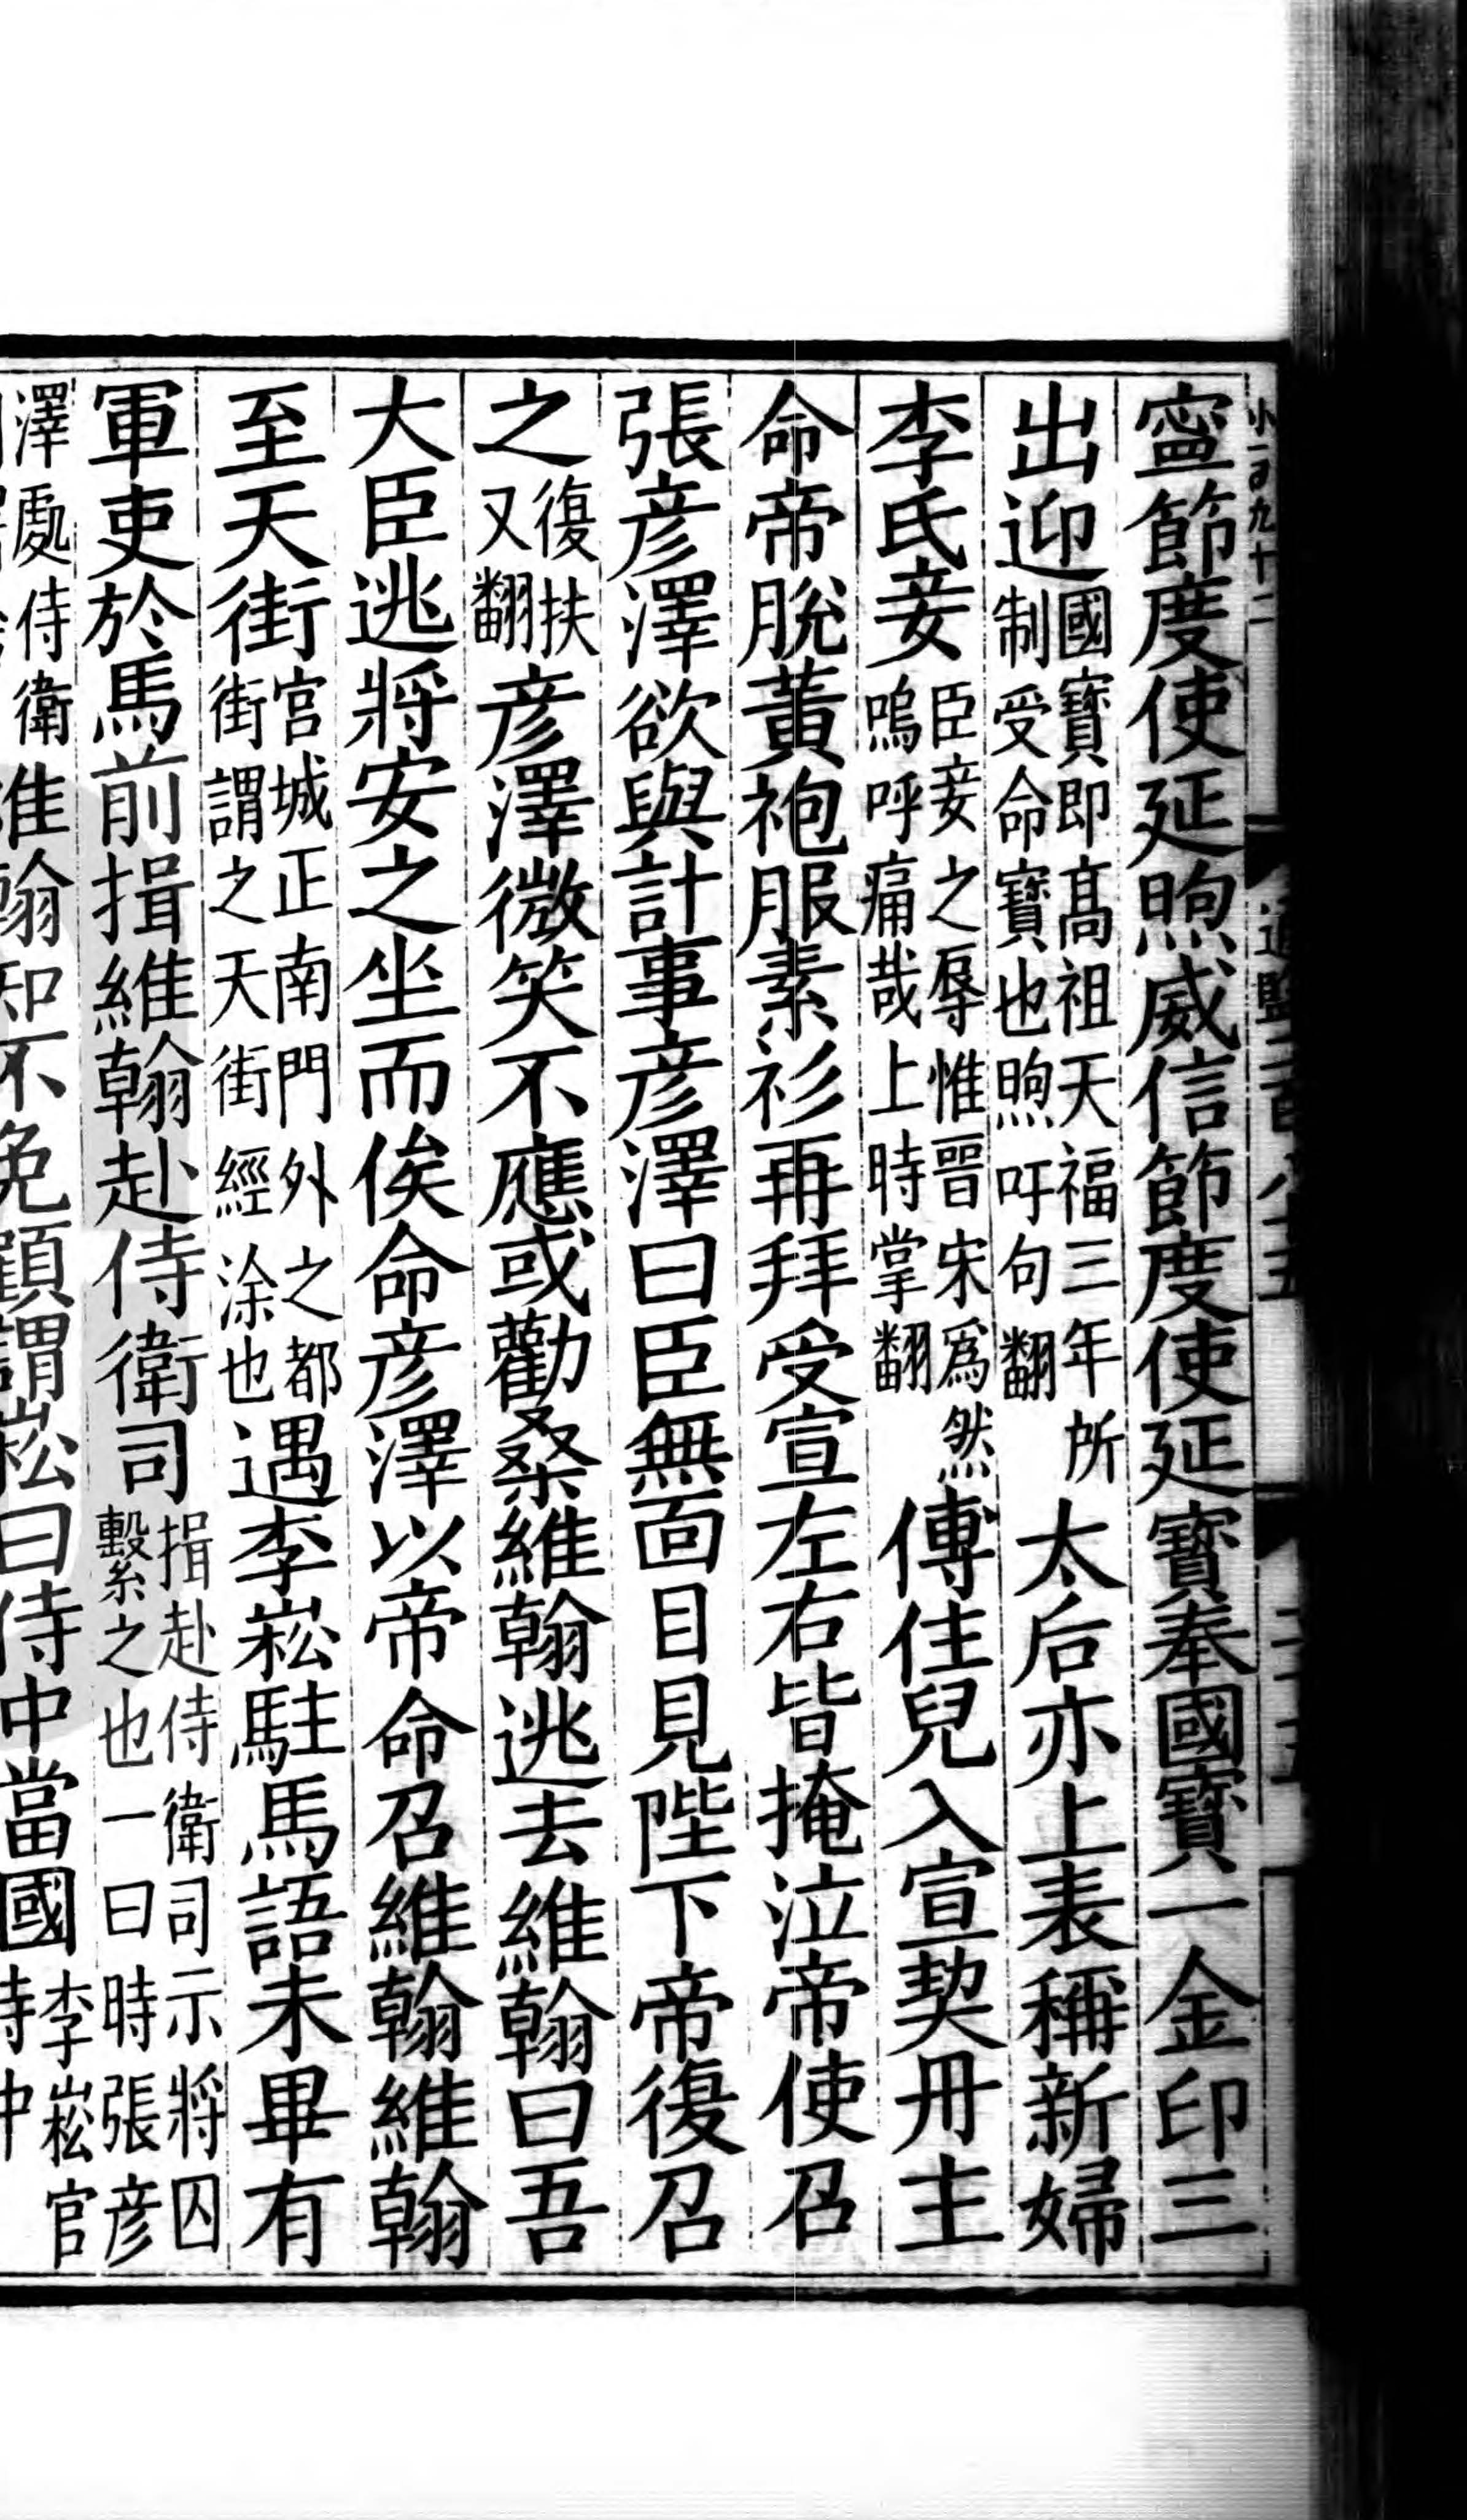 小一百九十二
寍節度使延煦威信節度使延寶奉國寶一金印三
出迎國寶即髙祖天福三年所制受命寶也煦吁句翻太后亦上表稱新婦
李氏妾臣妾之辱惟晉宋爲然嗚呼痛哉上時掌翻傅住兒入宣契丹主
命帝脫黃袍服素衫再拜受宣左右皆掩泣帝使召
張彦澤欲與計事彦澤曰臣無面目見陛下帝復召
之復扶又翻彦澤微笑不應或勸桑維翰逃去維翰曰吾
大臣逃將安之坐而俟命彦澤以帝命召維翰維翰
至天街宮城正南門外之都街謂之天街經涂也遇李崧駐馬語未畢有
軍吏於馬前揖維翰赴侍衛司揖赴侍衛司示將囚繫之也一曰時張彦
澤處侍衛維翰知不免顧謂崧曰侍中當國李崧官侍中